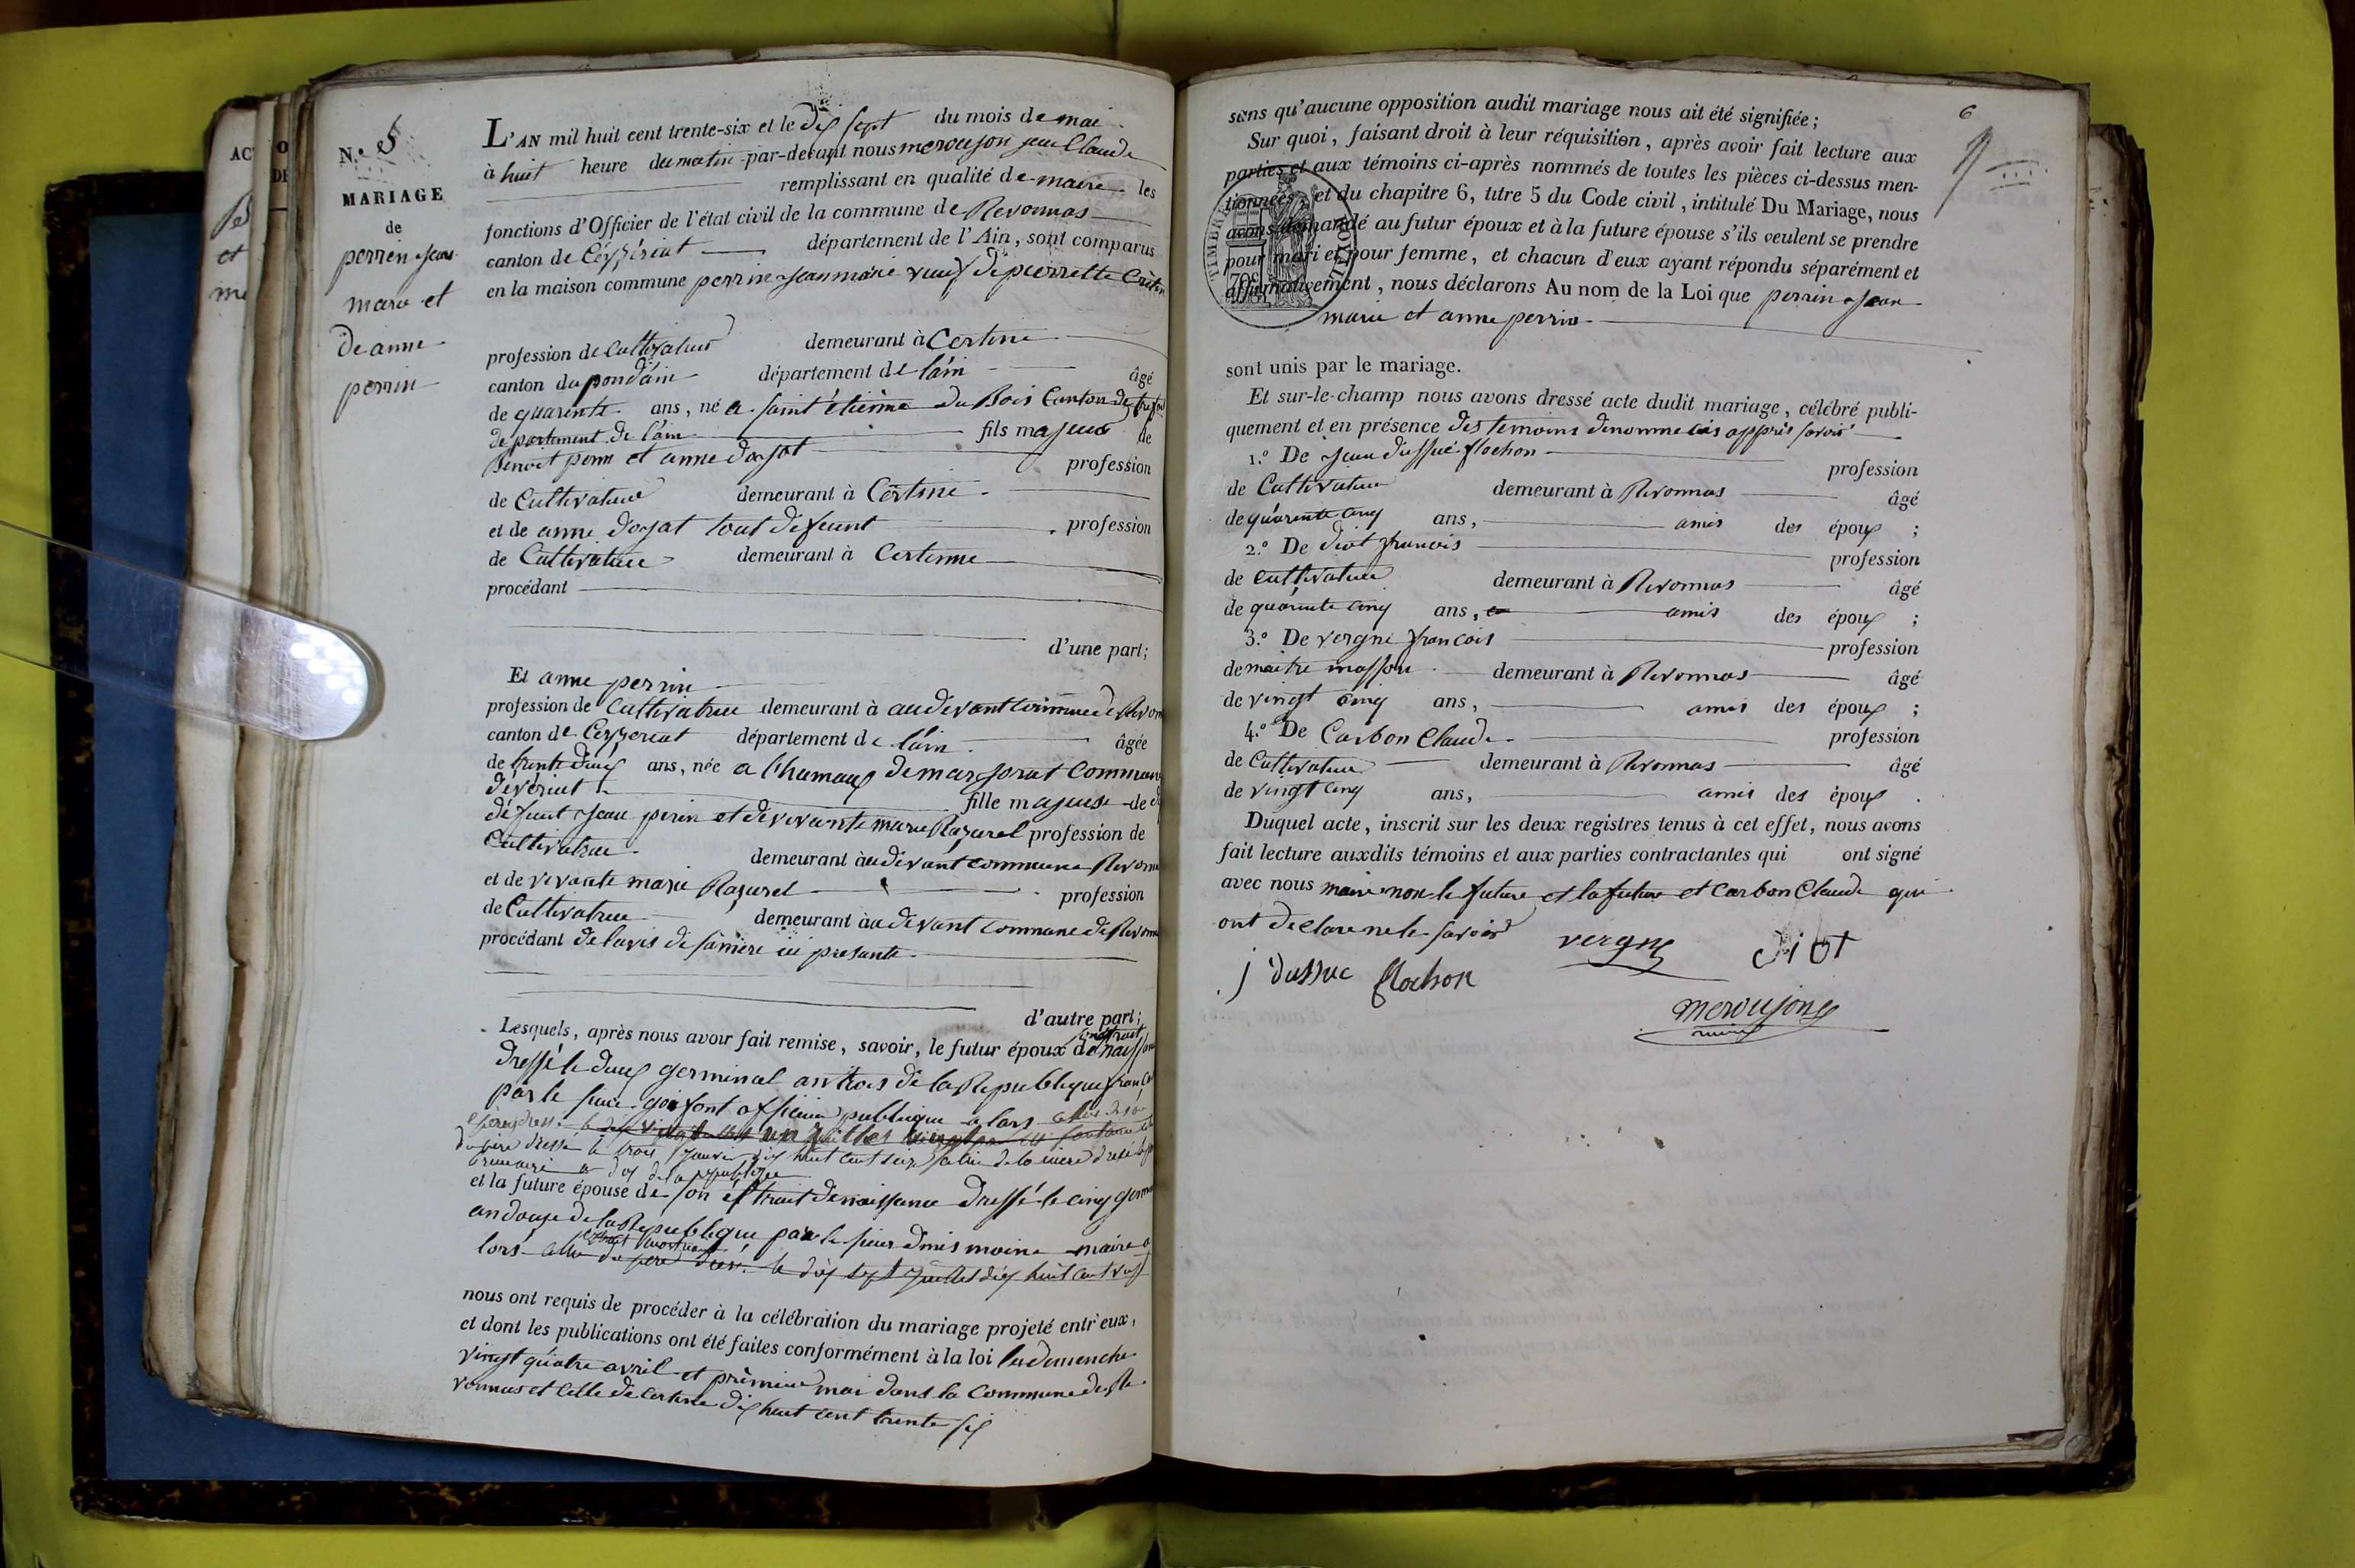 N.º 5
MARIAGE
de
perrin Jean
marie et
de anne
perrin
L'AN mil huit cent trente-six et le dix sept du mois de mai
à huit heure du matin par-devant nous meroujon jean Claude
remplissant en qualité de maire les
fonctions d'Officier de l'état civil de la commune de Revonnas
canton de Céyzériat département de l'Ain, sont comparus
en la maison commune perrin Jean marie veuf de pierrette Crétin
profession de Cultivateur demeurant à Certine
canton du pondain département de l'ain âgé
de quarante ans, né a saint étienne du Bois Canton de
département de l'ain fils majeur de
Benoit perin et anne dorjat profession
de Cultivateur demeurant à Certine
et de anne dorjat tout defeunt profession
de Cultivatrice demeurant à Certenne
procédant
d'une part;
Et anne perrin
profession de Cultivatrice demeurant à audevant commune de Revon
canton de Ceyzeriat département de l'ain âgée
de trente deux ans, née a lhumaux de marsonat Commune
déveriat fille majeuse de
défunt Jean perin et de vivante marie Razurel profession de
Cultivatrice demeurant à audevant commune Revonn
et de vivante marie Razurel profession
de Cultivatrice demeurant à audevant commune de Revonn
procédant de lavis de sa mère ici presante
d'autre part;
Lesquels, après nous avoir fait remise, savoir, le futur époux de naissan
dressé le deux germinal an trois de la Republique
par le sieur gonfont officier publique alors
du père dressé le trois dix huit cent seize celui de la mère dressé
brumaire an dix de la republique
et la future épouse de son extrait de naissance dressé le cinq germi
an douze de la Republique par le sieur moine maire a
lors celui du père le dix sept juillet dix huit cent
nous ont requis de procéder à la célébration du mariage projeté entr'eux,
et dont les publications ont été faites conformément à la loi les demenche
vingt quatre avril et prémier mai dans la Commune de Re
vonnas et celle de Certine dix huit cent trente six
6
sans qu'aucune opposition audit mariage nous ait été signifiée;
Sur quoi, faisant droit à leur réquisition, après avoir fait lecture aux
parties et aux témoins ci-après nommés de toutes les pièces ci-dessus men-
tionnées, et du chapitre 6, titre 5 du Code civil, intitulé Du Mariage, nous
avons demandé au futur époux et à la future épouse s'ils veulent se prendre
pour mari et pour femme, et chacun d'eux ayant répondu séparément et
affirmativement, nous déclarons Au nom de la Loi que perrin Jean
marie et anne perrin
TIMBRE ROYAL
70
sont unis par le mariage.
Et sur-le-champ nous avons dressé acte dudit mariage, célébré publi-
quement et en présence des temoins denommé ci apprès savoir
1.º De Jean dussuc flochon profession
de Cultivateur demeurant à Revonnas âgé
de quarente cinq ans, amis des époux ;
2.º De diot françois profession
de cultivateur demeurant à Revonnas âgé
de quarente cinq ans, amis des époux ;
3.º De vergne françois profession
de maitre masson demeurant à Revonnas âgé
de vingt cinq ans, amis des époux ;
4.º De Carbon Claude profession
de Cultivateur demeurant à Revonnas âgé
de vingt cinq ans, amis des époux .
Duquel acte, inscrit sur les deux registres tenus à cet effet, nous avons
fait lecture auxdits témoins et aux parties contractantes qui ont signé
avec nous maire non le future et la future et Carbon Claude qui
ont declare ne le savoir
vergne diot
j dussuc flochon
meroujon
maire